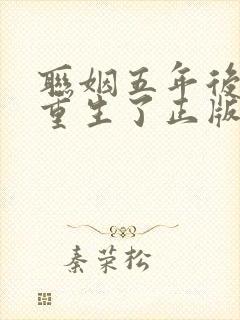 聯姻五年後
重生了正版
秦荣松